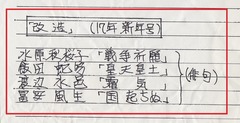 「改造」(17年新年号)
水原秋桜子「戦争祈願」
飯田蛇笏「皇天皇土」
渡辺水巴「霜気」
富安風生「国起ちぬ」
(俳句)